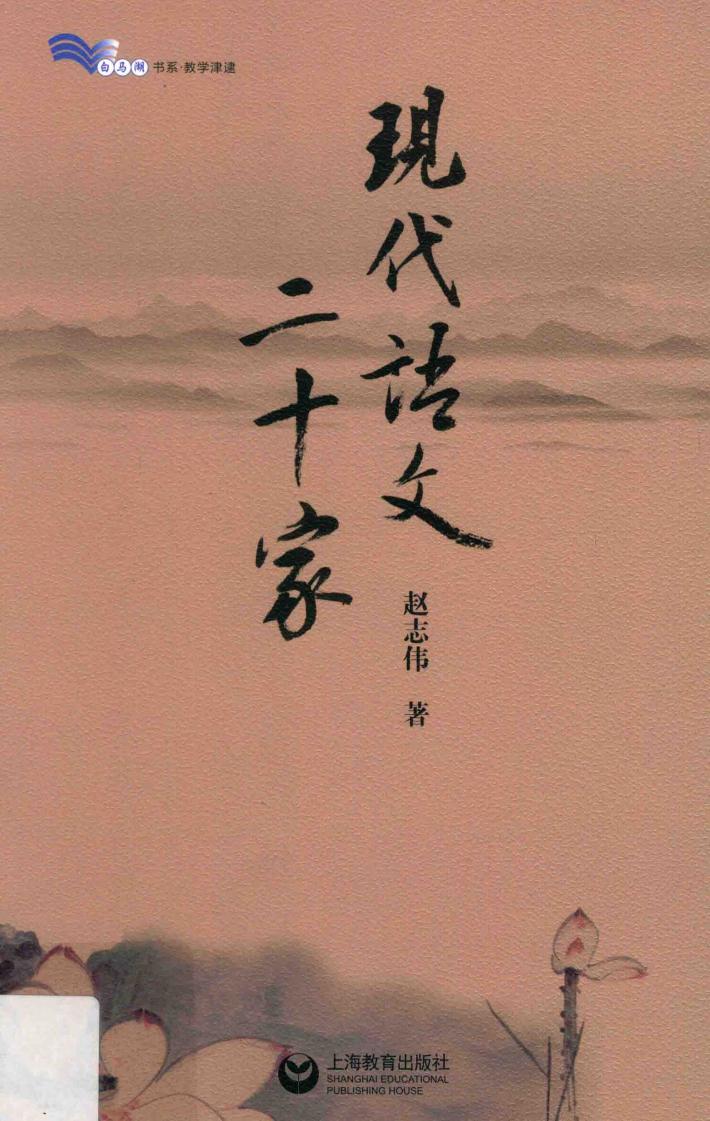 白马湖 书系·教学津逮
現代語文
二十家
赵志伟 著
上海教育出版社
SHANGHAI EDUCATIONAL
PUBLISHING HOUSE